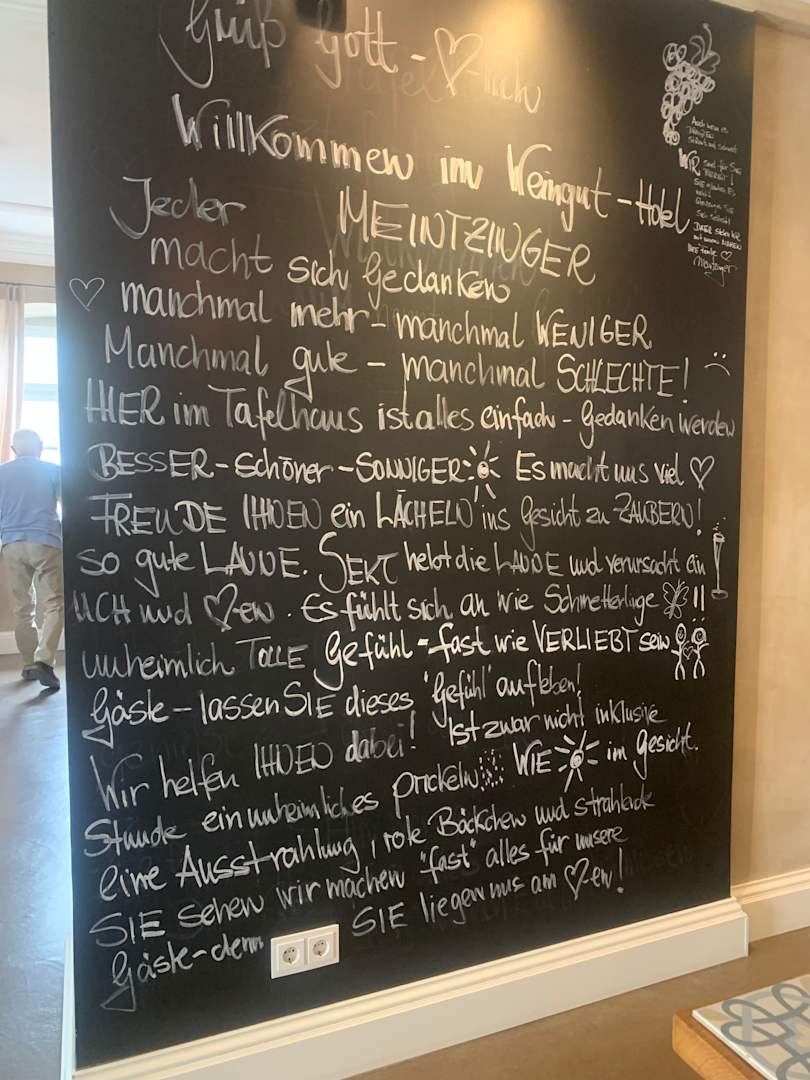 Grüß Gott - ♡lich
Willkommen im Weingut - Hotel
MEINTZINGER
Jeder
macht sich Gedanken
♡ manchmal mehr - manchmal WENIGER
Manchmal gute - manchmal SCHLECHTE!
HIER im Tafelhaus ist alles einfach - Gedanken werden
BESSER - Schöner - SONNIGER Es macht uns viel ♡
FREUDE IHNEN ein LÄCHELN ins Gesicht zu ZAUBERN!
so gute LAUNE. SEKT hebt die LAUNE und verursacht ein
UCH und ♡-en. Es fühlt sich an wie Schmetterlinge !!
unheimlich TOLLE Gefühl - fast wie VERLIEBT sein
Gäste - lassen SIE dieses "Gefühl" aufleben!
Wir helfen IHNEN dabei! Ist zwar nicht inklusive
Stunde ein unheimliches prickeln WIE im Gesicht.
eine Ausstrahlung, rote Bäckchen und strahlende
SIE sehen wir machen "fast" alles für unsere
Gäste - denn SIE liegen uns am ♡-en!
Auch wenn es
WIR sind für SIE
DAHER stehen wir
mit unserem NAMEN
IHRE Familie ♡
Meintzinger